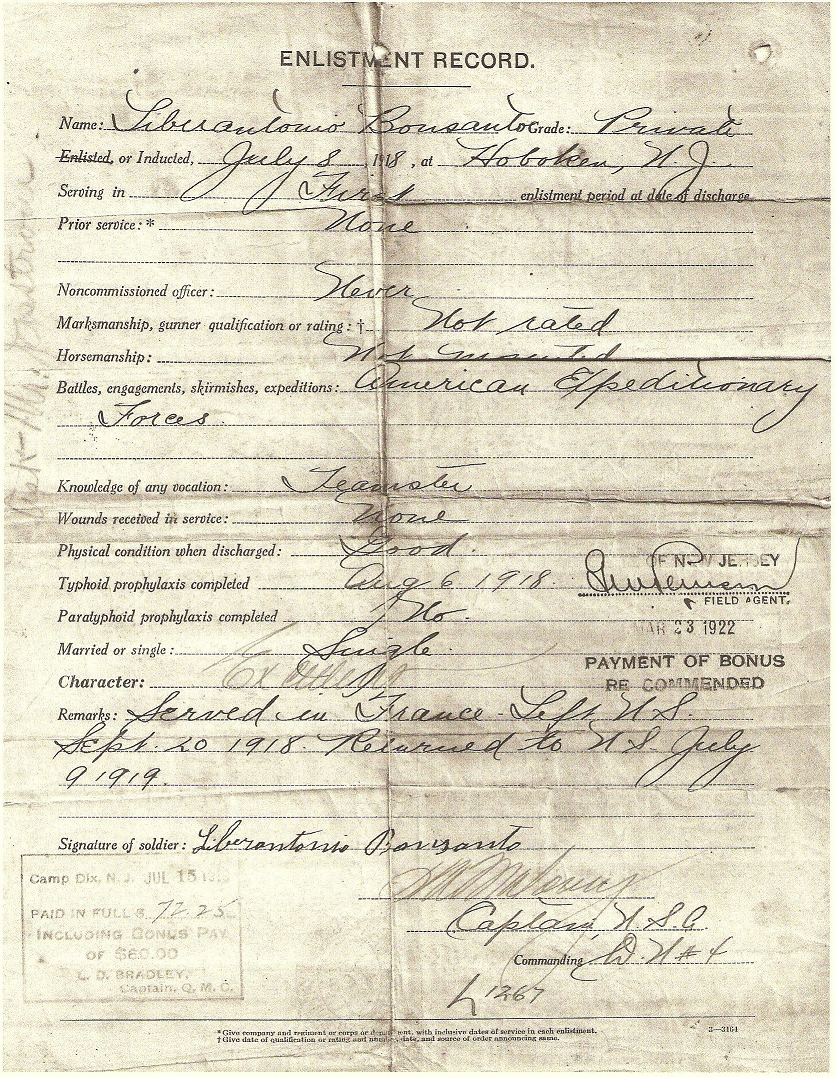 ENLISTMENT RECORD.
Name: Liberantonio Bonsanto Grade: Private
Enlisted, or Inducted, July 8, 1918, at Hoboken, N.J.
Serving in First enlistment period at date of discharge.
Prior service: * None
Noncommissioned officer: Never
Marksmanship, gunner qualification or rating: † Not rated
Horsemanship: Not mounted
Battles, engagements, skirmishes, expeditions: American Expeditionary
Forces.
Knowledge of any vocation: Teamster
Wounds received in service: None
Physical condition when discharged: Good.
OF NEW JERSEY
Typhoid prophylaxis completed Aug 6 1918.
FIELD AGENT.
Paratyphoid prophylaxis completed No.
MAR 23 1922
Married or single: Single.
PAYMENT OF BONUS
Character: Excellent
RECOMMENDED
Remarks: Served in France. Left U.S.
Sept. 20 1918. Returned to U.S. July
9 1919.
Signature of soldier: Liberantonio Bonsanto
Camp Dix, N. J. JUL 15
PAID IN FULL $ 72.25
INCLUDING BONUS PAY
OF $60.00
L. D. BRADLEY,
Captain, Q. M. C.
Captain, U.S.A
Commanding
L 1267
* Give company and regiment or corps or department, with inclusive dates of service in each enlistment.
† Give date of qualification or rating and number, date, and source of order announcing same.
3—3164